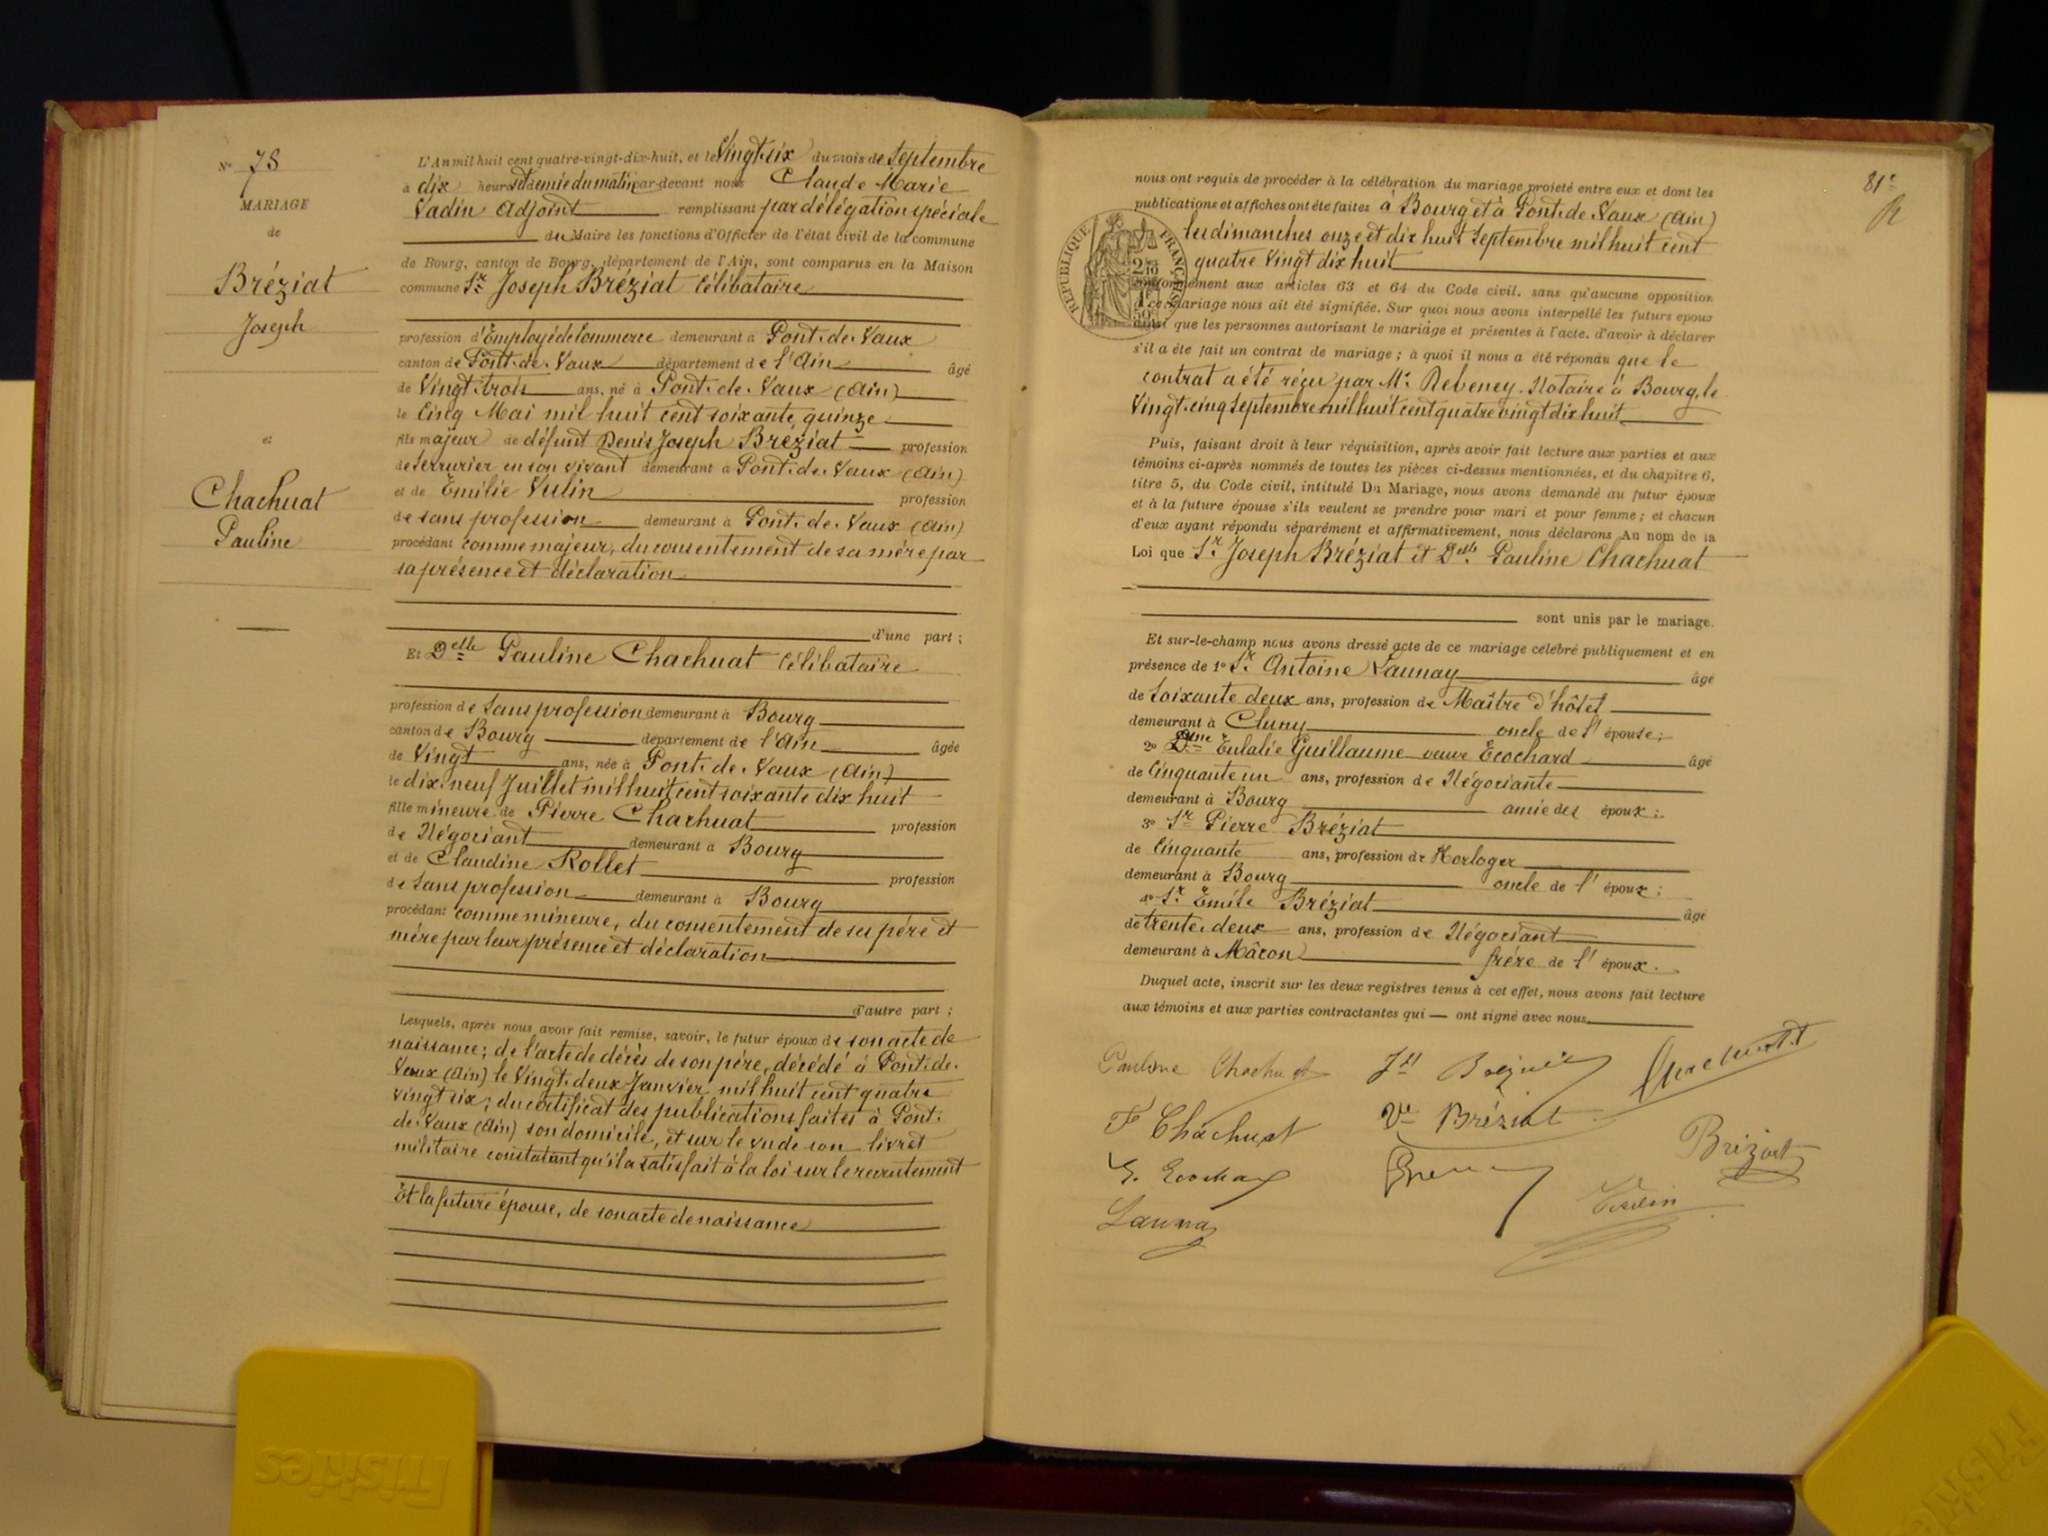 N° 78
MARIAGE
de
Bréziat
Joseph
et
Chachuat
Pauline
L'An mil huit cent quatre-vingt-dix-huit, et le Vingt-six du mois de Septembre
à dix heures et demie du matin par-devant nous Claude Marie
Vadin Adjoint remplissant par délégation spéciale
du Maire les fonctions d'Officier de l'état civil de la commune
de Bourg, canton de Bourg, département de l'Ain, sont comparus en la Maison
commune Sr Joseph Bréziat Célibataire
profession d'Employé de Commerce demeurant à Pont-de-Vaux
canton de Pont-de-Vaux département de l'Ain âgé
de Vingt-trois ans, né à Pont-de-Vaux (Ain)
le Cinq Mai mil huit cent soixante quinze
fils majeur de défunt Denis Joseph Bréziat profession
de Serrurier en son vivant demeurant à Pont-de-Vaux (Ain)
et de Emilie Vulin profession
de sans profession demeurant à Pont-de-Vaux (Ain)
procédant comme majeur, du consentement de sa mère par
sa présence et déclaration
d'une part ;
Et Delle Pauline Chachuat Célibataire
profession de Sans profession demeurant à Bourg
canton de Bourg département de l'Ain âgée
de Vingt ans, née à Pont-de-Vaux (Ain)
le dix-neuf Juillet mil huit cent soixante dix huit
fille mineure de Pierre Chachuat profession
de Négociant demeurant à Bourg
et de Claudine Rollet profession
de Sans profession demeurant à Bourg
procédant comme mineure, du consentement de ses père et
mère par leur présence et déclaration
d'autre part ;
Lesquels, après nous avoir fait remise, savoir, le futur époux de son acte de
naissance ; de l'acte de décès de son père, décédé à Pont-de-
Vaux (Ain) le Vingt-deux Janvier mil huit cent quatre
vingt six ; du certificat des publications faites à Pont-
de-Vaux (Ain) son domicile, et sur le vu de son livret
militaire constatant qu'il a satisfait à la loi sur le recrutement
Et la future épouse, de son acte de naissance
81e
R
nous ont requis de procéder à la célébration du mariage projeté entre eux et dont les
publications et affiches ont été faites à Bourg et à Pont-de-Vaux (Ain)
les dimanches onze et dix huit Septembre mil huit cent
quatre vingt dix huit
RÉPUBLIQUE FRANÇAISE
conformément aux articles 63 et 64 du Code civil. sans qu'aucune opposition
à ce mariage nous ait été signifiée. Sur quoi nous avons interpellé les futurs epoux
ainsi que les personnes autorisant le mariage et présentes à l'acte. d'avoir à déclarer
s'il a été fait un contrat de mariage ; à quoi il nous a été répondu que le
contrat a été réçu par Me Rebeney Notaire à Bourg, le
Vingt-cinq Septembre mil huit cent quatre vingt dix huit
Puis, faisant droit à leur réquisition, après avoir fait lecture aux parties et aux
témoins ci-après nommés de toutes les pièces ci-dessus mentionnées, et du chapitre 6,
titre 5, du Code civil, intitulé Du Mariage, nous avons demandé au futur époux
et à la future épouse s'ils veulent se prendre pour mari et pour femme ; et chacun
d'eux ayant répondu séparément et affirmativement, nous déclarons Au nom de la
Loi que Sr Joseph Bréziat et Delle Pauline Chachuat
sont unis par le mariage.
Et sur-le-champ nous avons dressé acte de ce mariage célébré publiquement et en
présence de 1° Sr Antoine Launay âgé
de Soixante deux ans, profession de Maître d'hôtel
demeurant à Cluny oncle de l'épouse ;
2° Dame Eulalie Guillaume veuve Ecochard âgé
de Cinquante un ans, profession de Négociante
demeurant à Bourg amie des époux ;
3° Sr Pierre Bréziat
de Cinquante ans, profession de Horloger
demeurant à Bourg oncle de l'époux ;
4° Sr Emile Bréziat âgé
de trente-deux ans, profession de Négociant
demeurant à Mâcon frère de l'époux.
Duquel acte, inscrit sur les deux registres tenus à cet effet, nous avons fait lecture
aux témoins et aux parties contractantes qui — ont signé avec nous
Pauline Chachuat
Chachuat
F Chachuat
Ve Bréziat
Bréziat
E. Ecochard
Launay
Friskies
Friskies